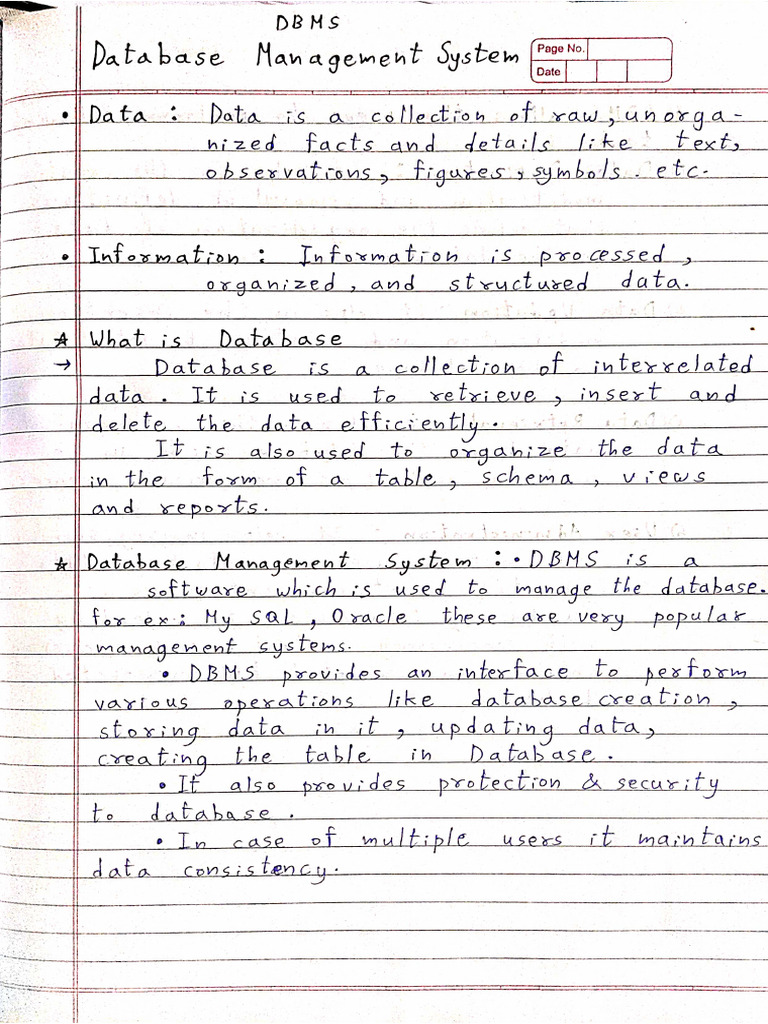 DBMS
Database Management System
Page No.
Date
• Data : Data is a collection of raw, unorga-
nized facts and details like text,
observations, figures, symbols. etc.
• Information : Information is processed,
organized, and structured data.
☆ What is Database
→ Database is a collection of interrelated
data. It is used to retrieve, insert and
delete the data efficiently.
It is also used to organize the data
in the form of a table, schema, views
and reports.
☆ Database Management System : • DBMS is a
software which is used to manage the database.
for ex: My SQL, Oracle these are very popular
management systems.
• DBMS provides an interface to perform
various operations like database creation,
storing data in it, updating data,
creating the table in Database.
• It also provides protection & security
to database.
• In case of multiple users it maintains
data consistency.